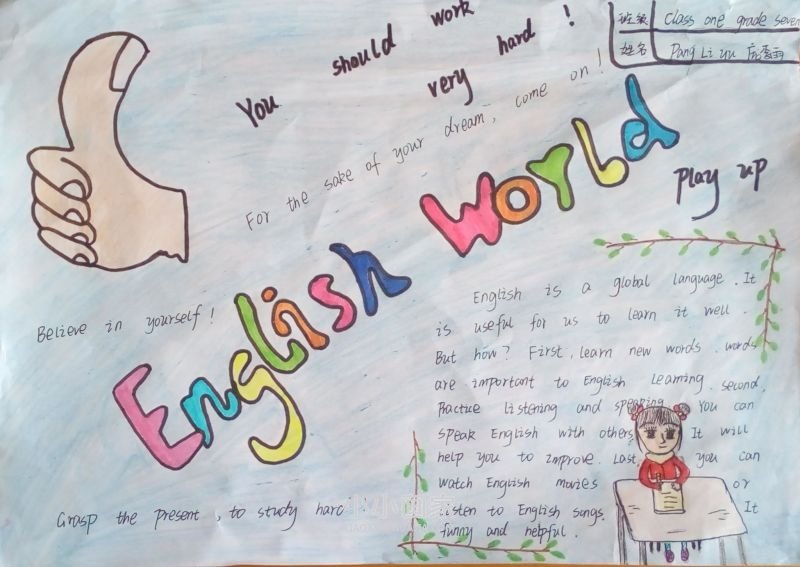 You should work
very hard !
班级 Class one grade seven
姓名 Pang Li yu
For the sake of your dream, come on !
English World
Play up
Believe in yourself !
English is a global language. It
is useful for us to learn it well.
But how? First, learn new words. words
are important to English learning. second,
Practice listening and speaking. You can
speak English with others. It will
help you to improve. Last, you can
watch English movies or
listen to English songs. It
funny and helpful.
Grasp the present, to study hard